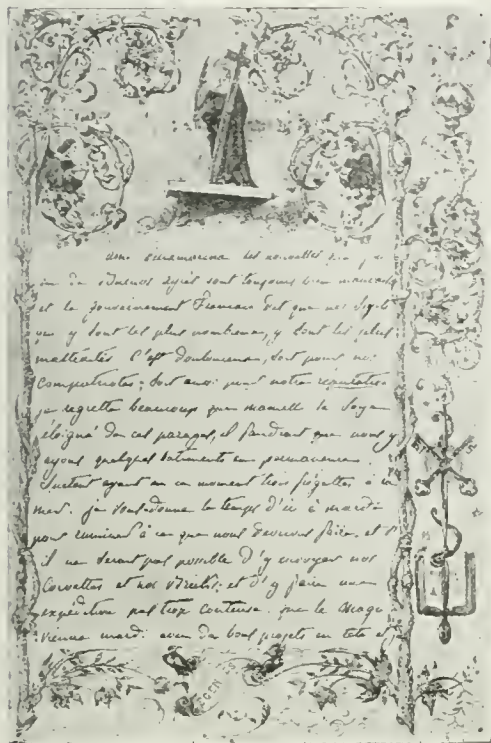 les nouvelles
de Buenos Ayres sont toujours bien mauvaises
et le gouvernement Francais dit que nos sujets
y sont les plus nombreux, y sont les plus
maltraités C'est douloureux, soit pour nos
compatriotes, soit aussi pour notre réputation
je regrette beaucoup que soye
éloigné de ces parages, il faudrait que nous y
ayons quelques bâtiments en permanence
surtout ayant en ce moment trois frégattes à la
mer. je vous donne le temps d'ici à mardi
pour ruminer à ce que nous devrions faire, et s'
il ne serait pas possible d'y envoyer nos
Corvettes et nos et d'y faire une
expédition pas trop couteuse. que le
vienne mardi avec de bons projets en tete et